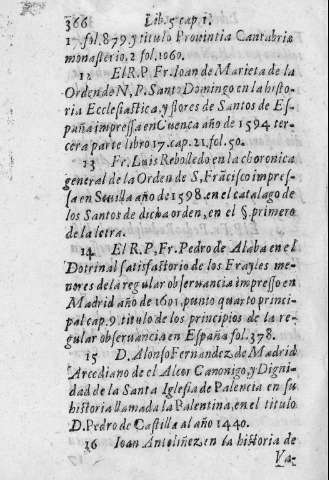 366 Lib. 5 cap. 1.
1. fol. 879. y titulo Prouintia Cantabria
monasterio. 2. fol. 1060.
12 El R. P. Fr. Ioan de Marieta de la
Orden de N. P. Santo Domingo en la histo-
ria Ecclesiastica, y flores de Santos de Es-
paña impressa en Cuenca año de 1594 ter-
cera parte libro 17. cap. 21. fol. 50.
13 Fr. Luis Rebolledo en la choronica
general de la Orden de S. Frãcisco impres-
sa en Seuilla año de 1598. en el catalago de
los Santos de dicha orden, en el §. primero
de la letra.
14 El R. P. Fr. Pedro de Alaba en el
Dotrinal satisfactorio de los Frayles me-
nores de la regular obseruancia impresso en
Madrid año de 1601. punto quarto princi-
pal cap. 9. titulo de los principios de la re-
gular obseruancia en España fol. 378.
15 D. Alonso Fernandez de Madrid
Arcediano de el Alcor Canonigo, y Digni-
dad de la Santa Iglesia de Palencia en su
historia llamada la Palentina, en el titulo
D. Pedro de Castilla al año 1440.
16 Ioan Antoliñez en la historia de
Va-